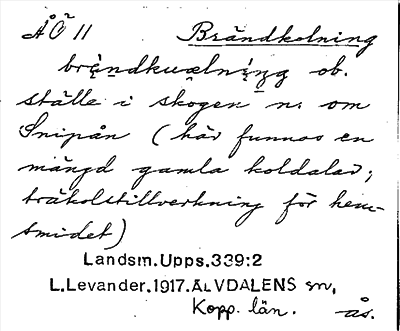 ÅÖ 11 Brändkolning
brä̀ndkwælnìŋg ob.
ställe i skogen n. om
Snipån (här funnos en
mängd gamla koldalar;
träkolstillverkning för hem-
smidet)
Landsm.Upps.339:2
L.Levander.1917.ÄLVDALENS sn,
Kopp. län. ås.